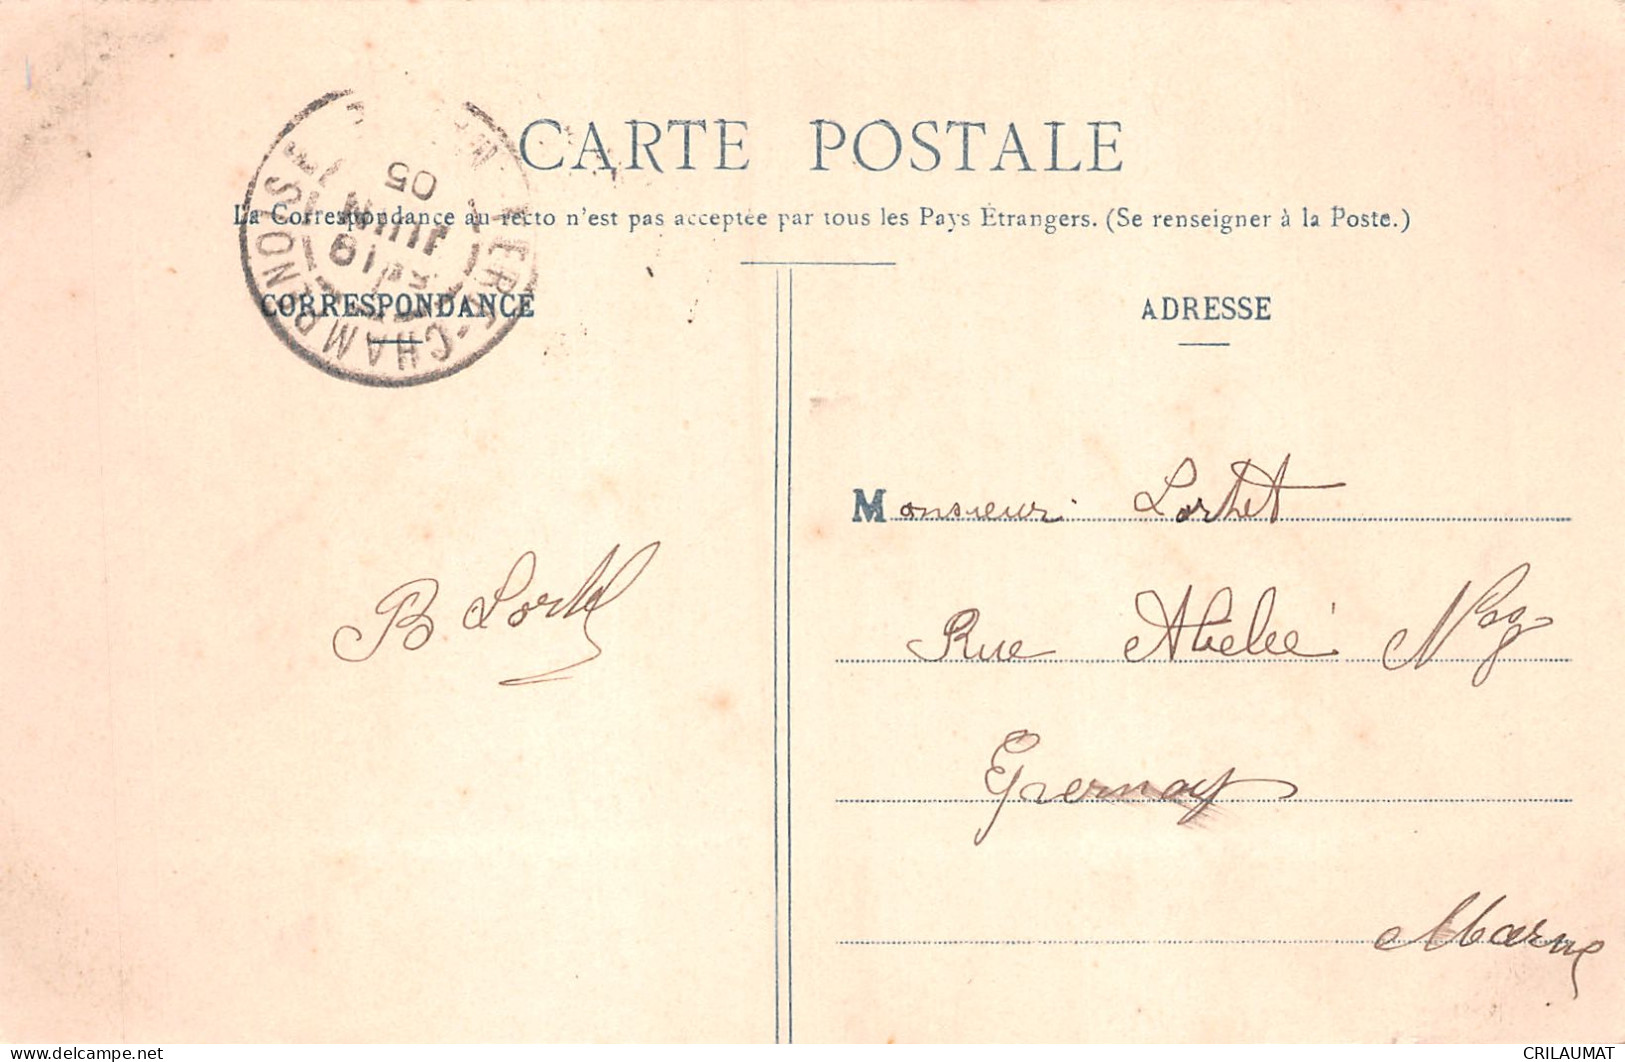 CARTE POSTALE
La Correspondance au recto n'est pas acceptée par tous les Pays Étrangers. (Se renseigner à la Poste.)
CORRESPONDANCE
ADRESSE
19
JUIN
05
Monsieur Lorhet
Rue
B
Epernay
Marne
delcampe.net
CRILAUMAT